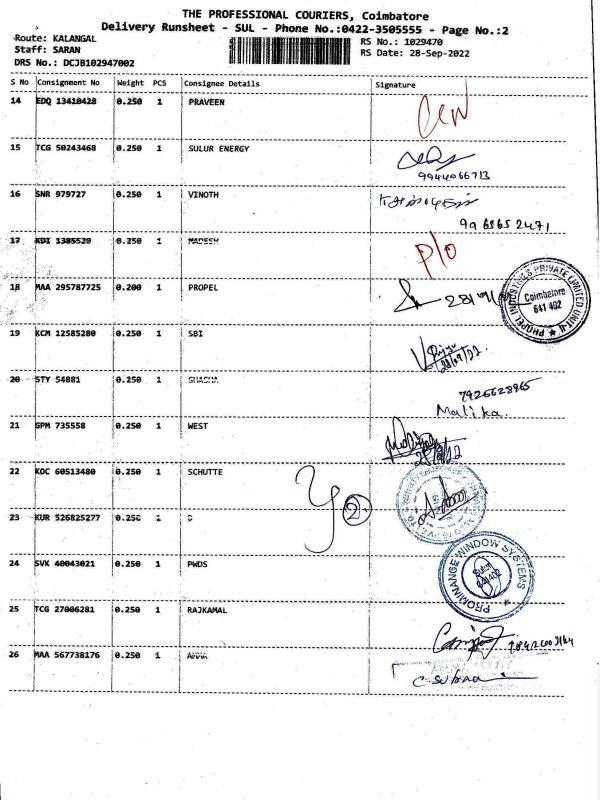 THE PROFESSIONAL COURIERS, Coimbatore
Delivery Runsheet - SUL - Phone No.:0422-3505555 - Page No.:2
Route: KALANGAL
Staff: SARAN
DRS No.: DCJB102947002
RS No.: 1029470
RS Date: 28-Sep-2022
S No Consignment No Weight PCS Consignee Details Signature
14 EDQ 13410428 0.250 1 PRAVEEN
15 TCG 50243468 0.250 1 SULUR ENERGY
9944066713
16 SNR 979727 0.250 1 VINOTH
99 6565 2471
17 KDI 1385520 0.250 1 MADESH
P/o
18 MAA 295787725 0.200 1 PROPEL
PROPEL INDUSTRIES PRIVATE LIMITED UNIT-II
Coimbatore
641 402
19 KCM 12585280 0.250 1 SBI
28/09/22
20 STY 54881 0.250 1
7926628965
Malika.
21 GPM 735558 0.250 1 WEST
22 KOC 60513480 0.250 1 SCHUTTE
2
23 KUR 526825277 0.250 1
24 SVK 40043021 0.250 1 PWDS
PROMINANCE WINDOW SYSTEMS
Sulur
641402
25 TCG 27006281 0.250 1 RAJKAMAL
26 MAA 567738176 0.250 1